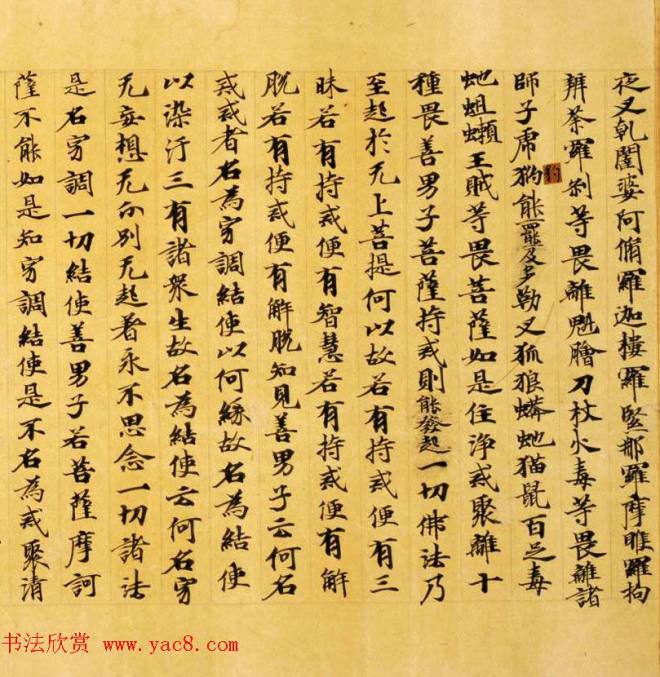 夜叉乹闥婆阿脩羅迦樓羅緊那羅摩睺羅拘
辨荼羅刹等畏離魁膾刀杖火毒等畏離諸
師子虎豹熊羆及多勒叉狐狼蟒虵猫鼠百足毒
虵蛆王賊等畏菩薩如是住淨戒聚離十
種畏善男子菩薩持戒則能發起一切佛法乃
至起於无上菩提何以故若有持戒便有三
昧若有持戒便有智慧若有持戒便有解
脱若有持戒便有解脱知見善男子云何名
戒戒者名為穷調結使以何緣故名為結使
以染汙三有諸衆生故名為結使云何名穷
无妄想无分別无起着永不思念一切諸法
是名穷調一切結使善男子若菩薩摩訶
薩不能如是知穷調結使是不名為戒聚清
书法欣赏 www.yac8.com